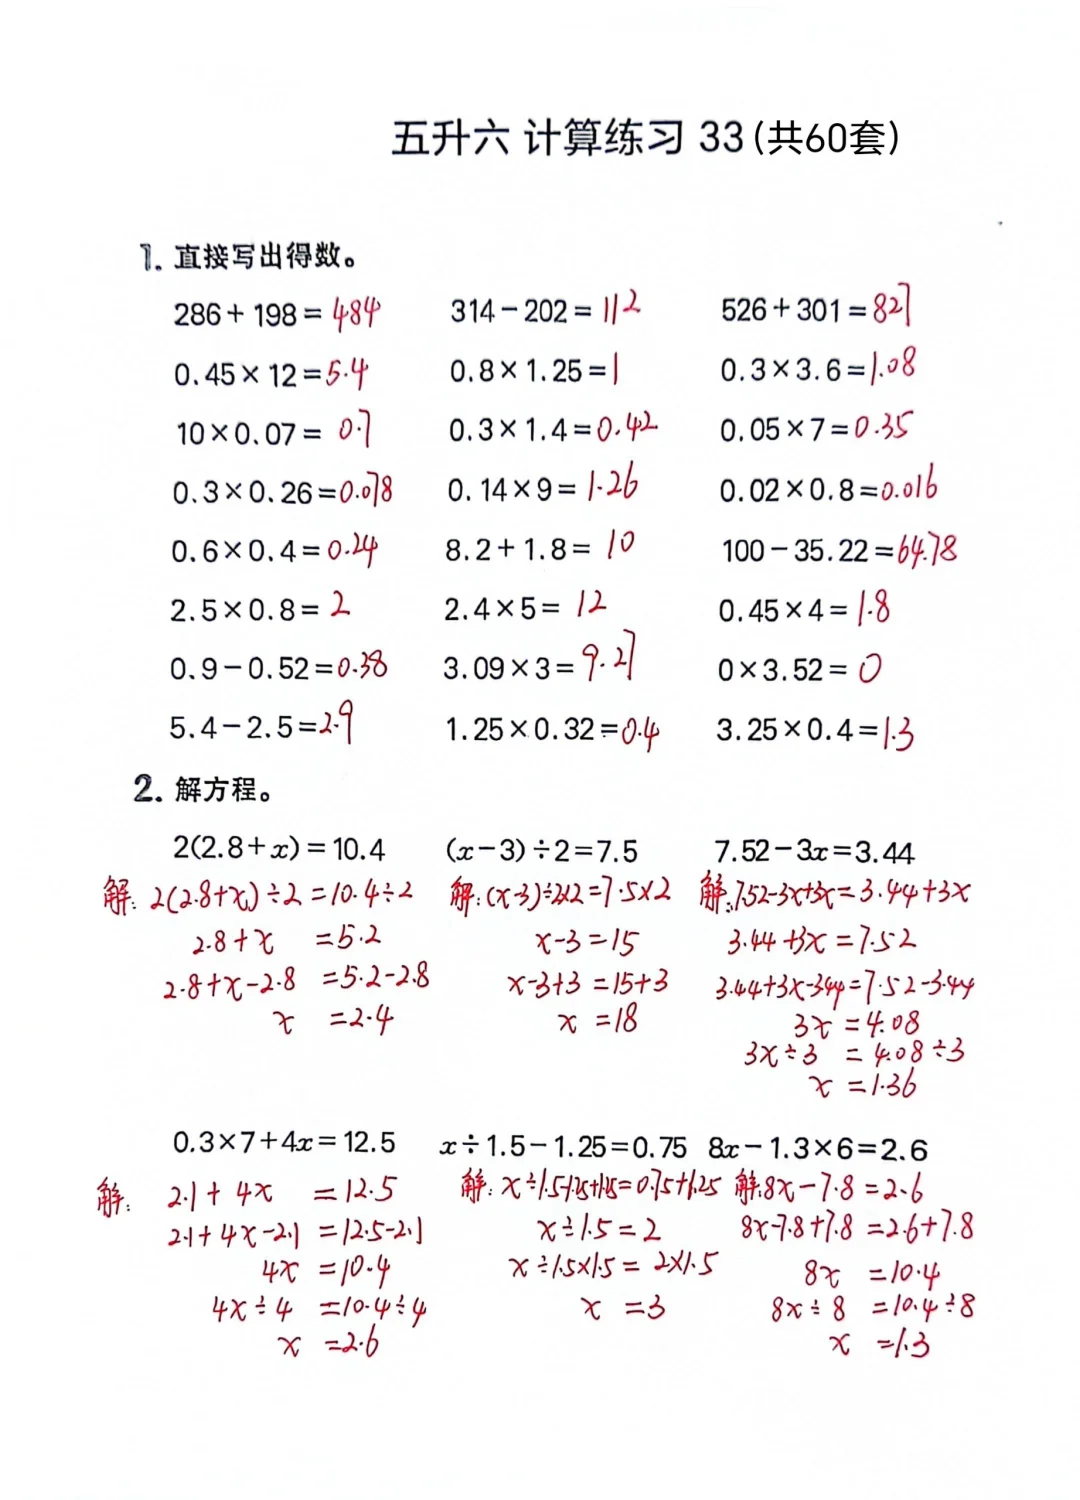 五升六 计算练习 33(共60套)
1. 直接写出得数。
286+198=484 314-202=112 526+301=827
0.45×12=5.4 0.8×1.25=1 0.3×3.6=1.08
10×0.07=0.7 0.3×1.4=0.42 0.05×7=0.35
0.3×0.26=0.078 0.14×9=1.26 0.02×0.8=0.016
0.6×0.4=0.24 8.2+1.8=10 100-35.22=64.78
2.5×0.8=2 2.4×5=12 0.45×4=1.8
0.9-0.52=0.38 3.09×3=9.27 0×3.52=0
5.4-2.5=2.9 1.25×0.32=0.4 3.25×0.4=1.3
2. 解方程。
2(2.8+x)=10.4 (x-3)÷2=7.5 7.52-3x=3.44
解: 2(2.8+x)÷2=10.4÷2 解:(x-3)÷2×2=7.5×2 解:7.52-3x+3x=3.44+3x
2.8+x=5.2 x-3=15 3.44+3x=7.52
2.8+x-2.8=5.2-2.8 x-3+3=15+3 3.44+3x-3.44=7.52-3.44
x=2.4 x=18 3x=4.08
3x÷3=4.08÷3
x=1.36
0.3×7+4x=12.5 x÷1.5-1.25=0.75 8x-1.3×6=2.6
解: 2.1+4x=12.5 解: x÷1.5-1.25+1.25=0.75+1.25 解:8x-7.8=2.6
2.1+4x-2.1=12.5-2.1 x÷1.5=2 8x-7.8+7.8=2.6+7.8
4x=10.4 x÷1.5×1.5=2×1.5 8x=10.4
4x÷4=10.4÷4 x=3 8x÷8=10.4÷8
x=2.6 x=1.3